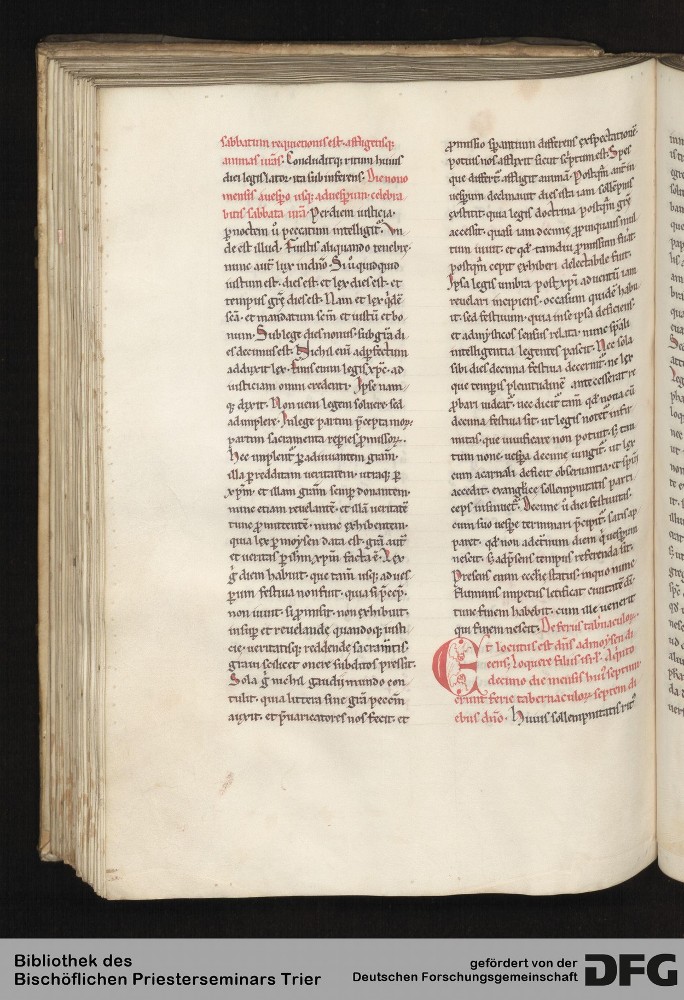 sabbatum requietionis est. affligetisq;
animas ur̄as. Concludit q; ritum huius
diei legislator. ita subinferens. Die nono
mensis a uesp̄o usq; ad uesperum. celebra
bitis sabbata ur̄a. Per diem iusticia.
p noctem ū peccatum intelligit᷒. Vn
de est illud. Fuistis aliquando tenebre.
nunc aut̄ lux in dn̄o. Si ū quidquid
iustum est. dies est. et lex dies est. et
tempus grē dies est. Nam et lex q̇dē
sc̄a. et mandatum sc̄m et iustū et bo
num. Sub lege dies nonus. sub gr̄a di
es decimus est. Nichil eni ad pfectum
adduxit lex. Finis enim legis xp̄c. ad
iusticiam omni credenti. Ipse nam
q; dixit. Non ueni legem soluere. sed
adimplere. In lege partim p̄cepta mor̄.
partim sacramenta repies p̄missor̄.
Hec implent᷒ p adiuuantem gram̄.
illa p redditam ueritatem. utraq; p
xp̄m. et illam gram̄ semp donantem.
nunc etiam reuelantē. et illā ueritatē
tunc p̄mittentē. nunc exhibentem.
quia lex p moysen data est. gr̄a aut̄
et ueritas p ih̄m xp̄m facta ē. Lex
ġ diem habuit. que tam̄ usq; ad ues
perum festiua non fuit. quia si p̄cep̄.
non iuuit. si p̄misit. non exhibuit.
insup et reuelande quandoq; iusti
cie. ueritatisq; reddende sacram̄tis.
graui scilicet onere subditos pressit.
Sola ġ nichil gaudii mundo con
tulit. quia littera sine gr̄a pecc̄m
auxit. et p̄uaricatores nos fecit. et
p̄missio sperantium differens exspectationē
potius nos afflixit sicut sc̄ptum est. Spes
que differt᷒. affligit animā. Postqm̄ aut̄ in
uesperum declinauit dies ista. iam sollēpnis
exstitit. quia legis doctrina postqm̄ grē
accessit. quasi iam decime p̄pinquans mul
tum iuuit. et qd̄ tamdiu p̄missum fuāt.
postqm̄ cepit exhiberi delectabile fuit.
Ipsa legis umbra post xp̄i aduentū iam
reuelari incipiens. occasum quidē habu
it. sed festiuum. quia in se ipsa deficiens.
et ad mysticos sensus relata. nunc sp̄ali
intelligentia legentes pascit. Nec sola
sibi dies decima festiua decernit᷒. ne lex
que temporis plenitudinē antecesserat re
probari uideat᷒. nec dicit᷒ tam̄ qd̄ nona cū
decima festiua sit. ut legis notet᷒ infir
mitas. que uiuificare non potuit. s; tam̄
tum none uespera decime iungit᷒. ut lex
cum a carnali deficit obseruantia. et sp̄m
accedit. euanglice sollempnitatis parti
ceps insinuet᷒. Decime ū diei festiuitas.
cum suo uespe terminari p̄cipit᷒. satis ap
paret. qd̄ non ad et̄num diem q̇ uesperum
nescit. s; ad p̄sens tempus referenda sit.
Presens enim ecclīe status. in quo nunc
fluminis impetus letificat ciuitatē dī.
tunc finem habebit. cum ille uenerit
qui finem nescit. De feriis tab̄naculor̄.
Et locutus est dn̄s ad moysen di
cens. Loquere filiis isrl̄. A quinto
decimo die mensis hui᷒ septimi
erunt ferie tabernaculor̄ septem di
ebus dn̄o. Huius sollempnitatis rit᷒
Bibliothek des
Bischöflichen Priesterseminars Trier
gefördert von der
Deutschen Forschungsgemeinschaft
DFG